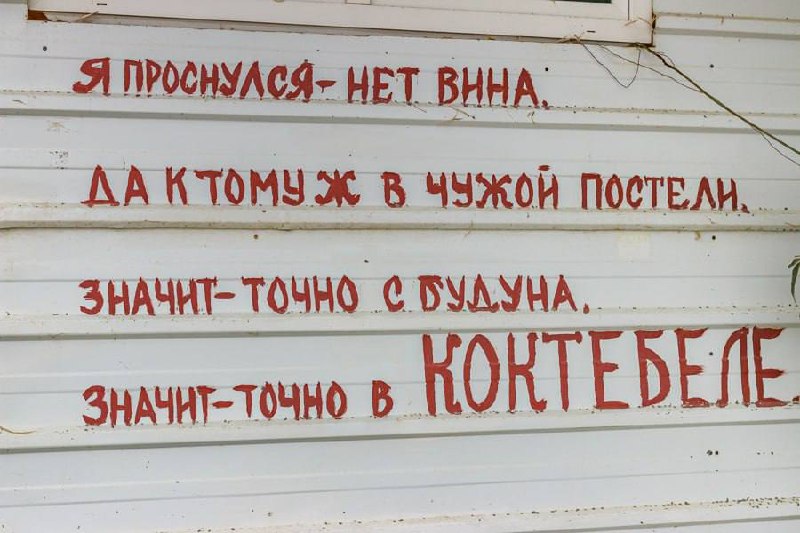 Я ПРОСНУЛСЯ- НЕТ ВИНА.
ДА К ТОМУ Ж В ЧУЖОЙ ПОСТЕЛИ.
ЗНАЧИТ-ТОЧНО С БУДУНА.
ЗНАЧИТ-ТОЧНО В КОКТЕБЕЛЕ.